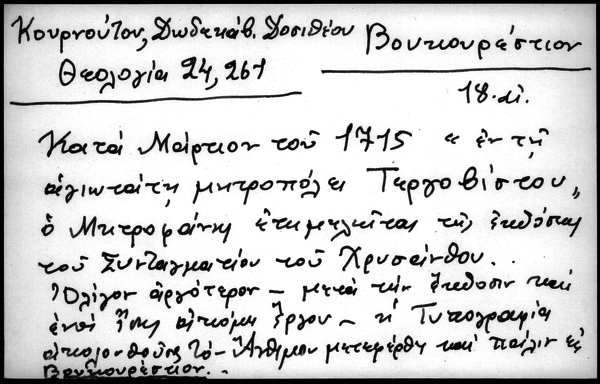 Κουρνούτου, Δωδεκάβ. Δοσιθέου
Θεολογία 24, 267
Βουκουρέστιον
18. αἰ.
Κατά Μάρτιον τοῦ 1715 « ἐν τῇ
ἁγιωτάτῃ μητροπόλει Τεργοβίστου»,
ὁ Μητροφάνης ἐπιμελεῖται τῆς ἐκδόσεως
τοῦ Συνταγματίου τοῦ Χρυσάνθου..
Ὀλίγον ἀργότερον – μετά τήν ἔκδοσιν καί
ἑνός ἴσως ἀκόμη ἔργου – ἡ Τυπογραφία
ἀκολουθοῦσα τό Ἄνθιμον μετεφέρθη καί πάλιν εἰς
Βουκουρέστιον.